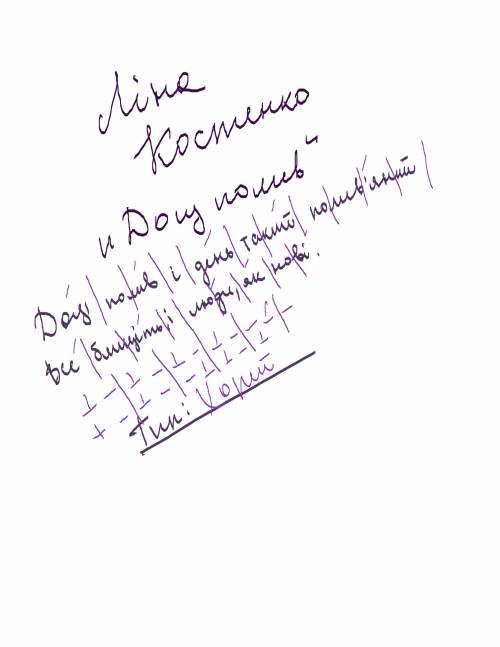 Ліна
Костенко
"Дощ полив"
Дощ полив і день такий полив'яний
Все блищить і люди, як нові.
Тип: Хорей